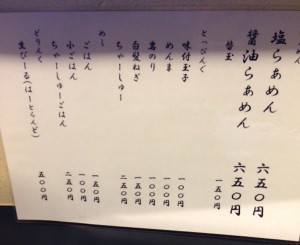 塩らあめん 六五〇円
醤油らあめん 六五〇円
替玉 一五〇円
とっぴんぐ
味付玉子 一〇〇円
めんま 一〇〇円
岩のり 一〇〇円
白髪ねぎ 一五〇円
ちゃーしゅー 二五〇円
めし
ごはん 一五〇円
小ごはん 一〇〇円
ちゃーしゅーごはん 二五〇円
どりんく
生びーる(はーとらんど) 五〇〇円